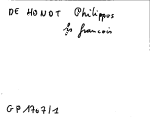 DE HONDT Philippus
fs francois
GP 1767/1